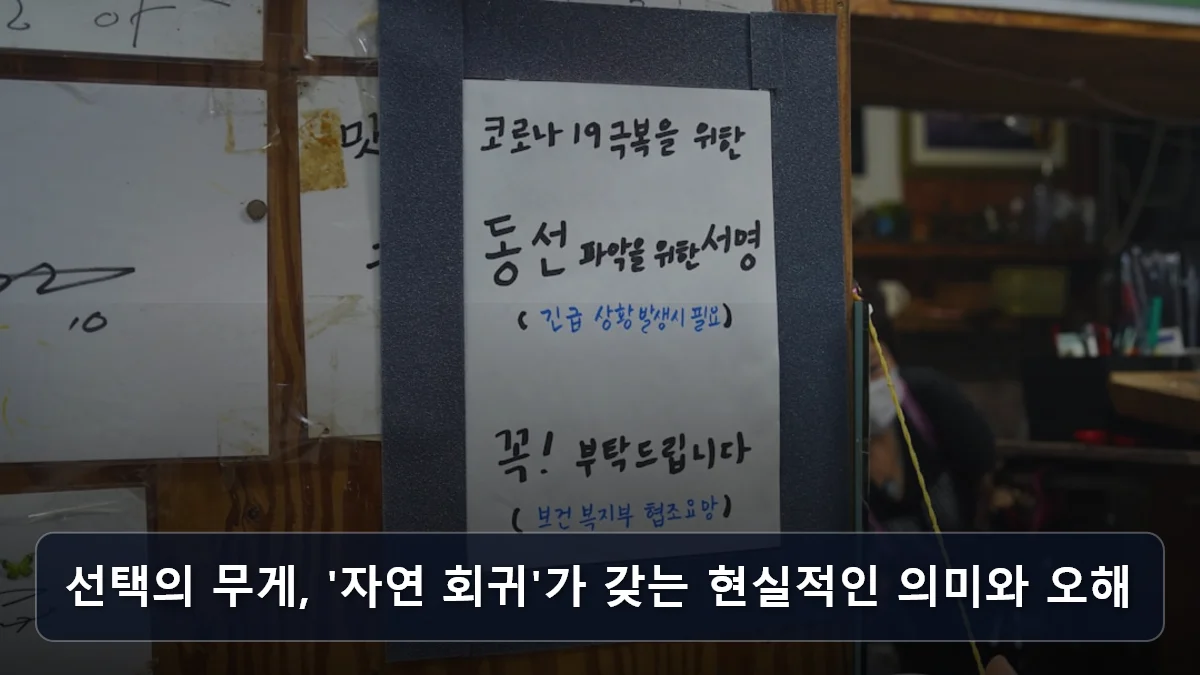 코로나 19 극복을 위한
동선 파악을 위한 서명
( 긴급 상황 발생시 필요)
꼭! 부탁드립니다
( 보건복지부 협조요망)
10
선택의 무게, '자연 회귀'가 갖는 현실적인 의미와 오해